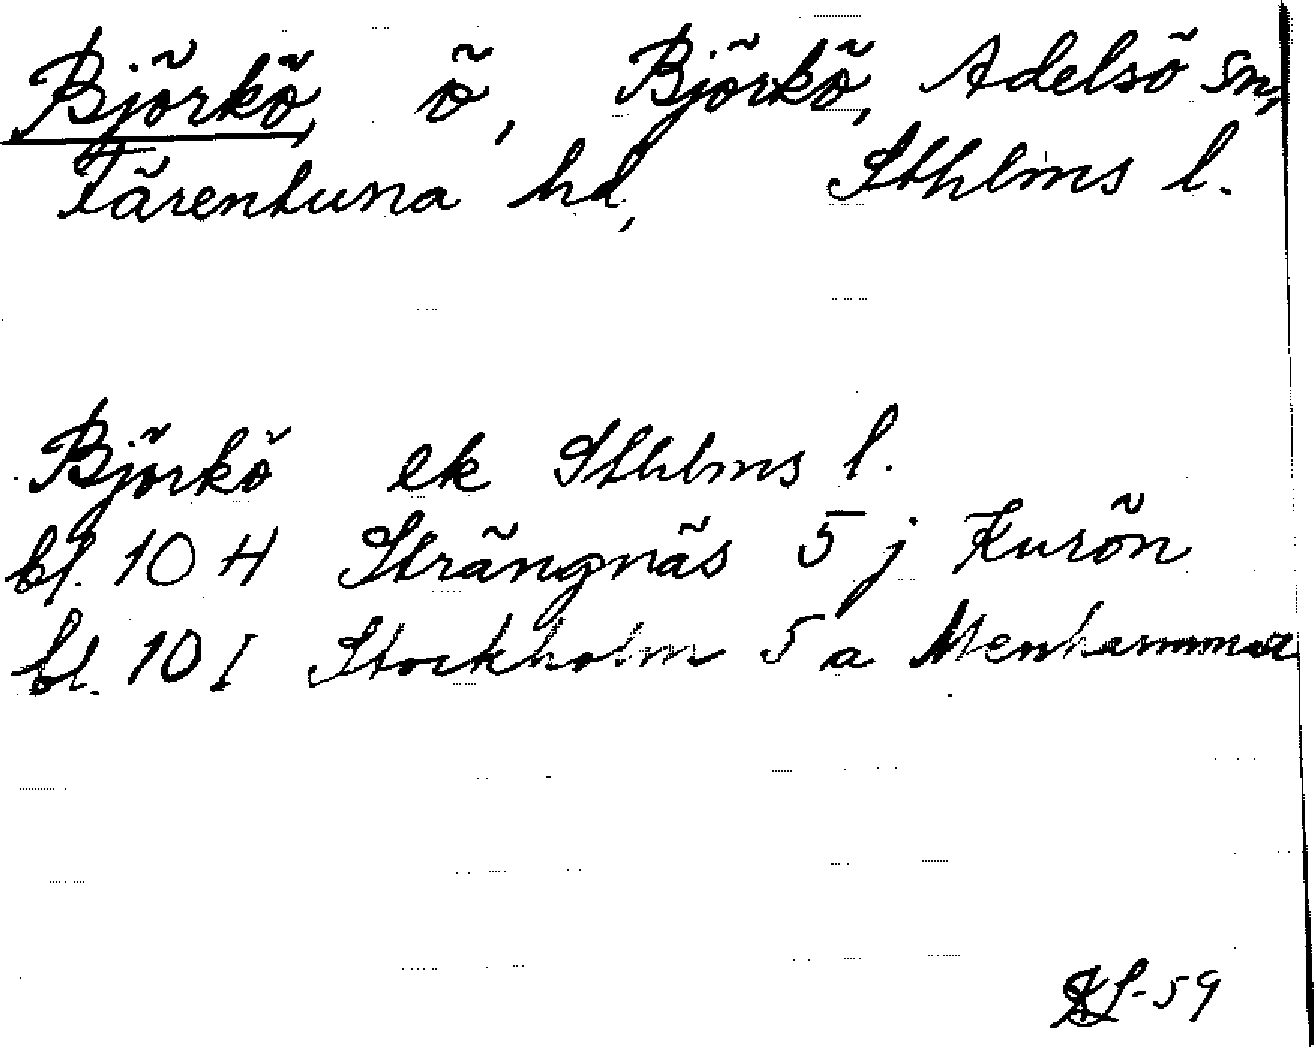 Björkö, ö, Björkö, Adelsö sn,
Färentuna hd, Sthlms l.
Björkö ek Sthlms l.
bl. 10 H Strängnäs 5 j Kurön
bl. 10 I Stockholm 5 a Menhammar
-59